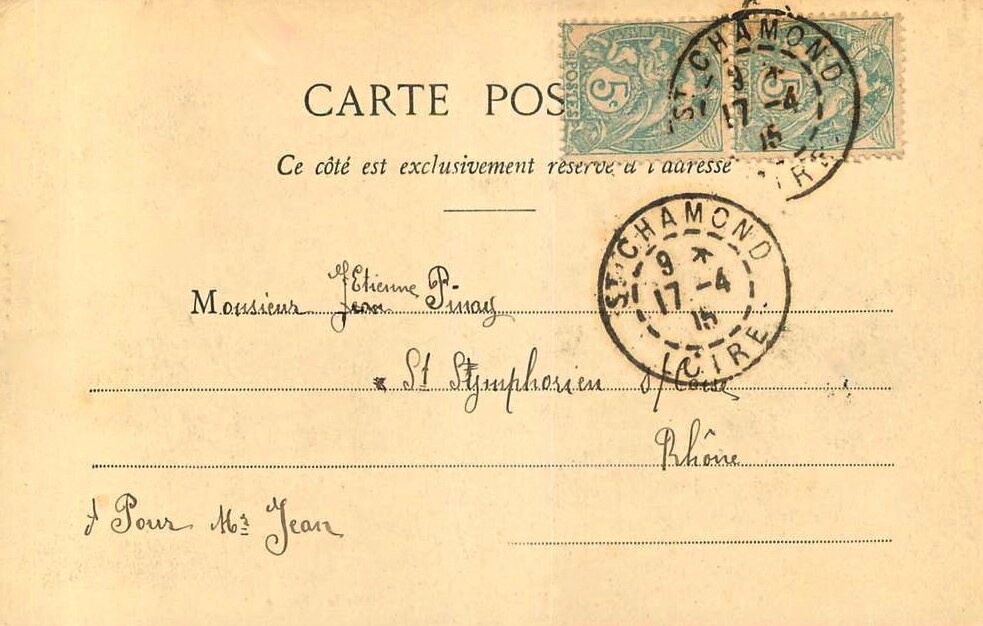 CARTE POS
5c
POSTES
5
ST CHAMOND
9 *
17 -4
15
IRE
Ce côté est exclusivement réservé à l'adresse
ST CHAMOND
9 *
17 -4
15
LOIRE
Etienne
Monsieur Jean Pinay
St Symphorien s/Coise
Rhône
Pour Mr Jean